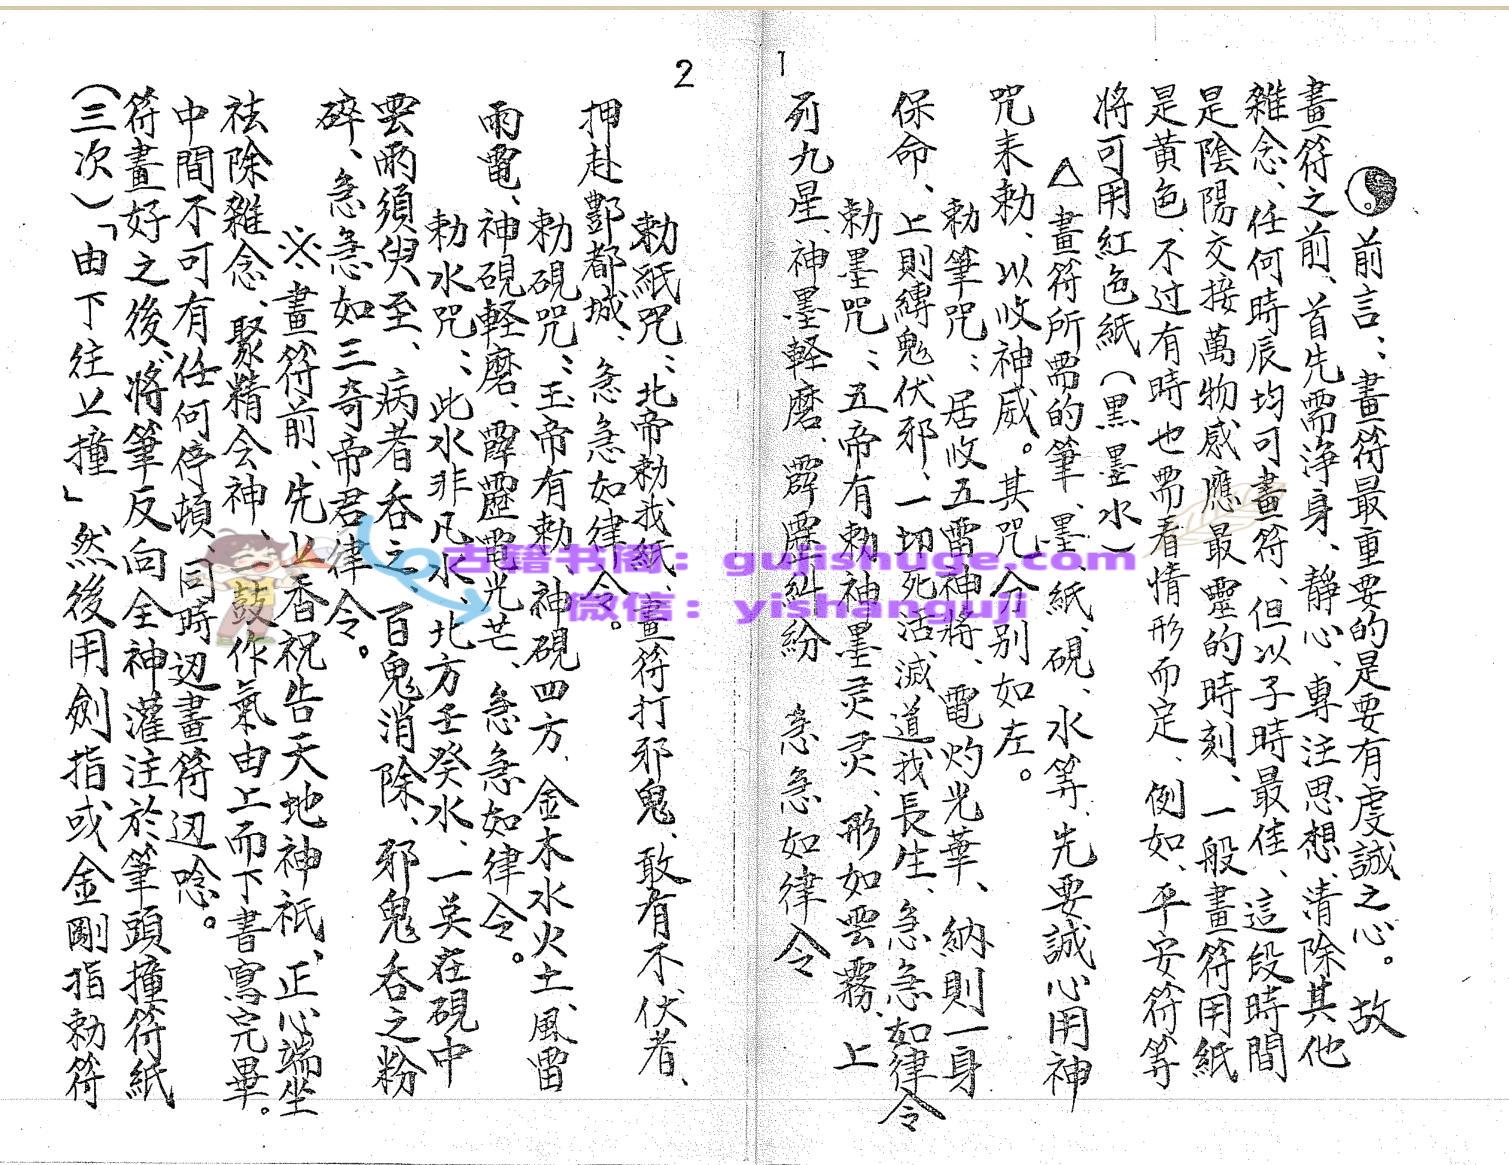 1
前言：畫符最重要的是要有虔誠之心。故
畫符之前、首先需淨身、靜心、專注思想、清除其他
雜念、任何時辰均可畫符、但以子時最佳、這段時間
是陰陽交接萬物感應最靈的時刻、一般畫符用紙
是黃色、不过有時也需看情形而定、例如、平安符等
將可用紅色紙（黑墨水）
△畫符所需的筆、墨、紙、硯、水等、先要誠心用神
咒来勅、以收神威。其咒分别如左。
勅筆咒：居收五雷神將、電灼光華、納則一身
保命、上則縛鬼伏邪、一切死活滅道我長生、急急如律令
勅墨咒：五帝有勅神墨灵灵、形如雲霧、上
列九星、神墨軽磨、霹靂糾紛 急急如律令
2
勅紙咒：北帝勅我紙、畫符打邪鬼、敢有不伏者、
押赴酆都城、急急如律令。
勅硯咒：玉帝有勅、神硯四方、金木水火土、風雷
雨電、神硯軽磨、霹靂電光芒、急急如律令。
勅水咒：此水非凡水、北方壬癸水、一英在硯中
雲雨須臾至、病者吞之、百鬼消除、邪鬼吞之粉
碎、急急如三奇帝君律令。
※畫符前、先以香祝告天地神祇、正心端坐
祛除雜念、聚精会神、鼓作氣由上而下書寫完畢。
中間不可有任何停頓、同時边畫符边唸。
符畫好之後、將筆反向全神灌注於筆頭撞符紙
（三次）「由下往上撞」然後用劍指或金剛指勅符
古籍书阁：gujishuge.com
微信：yishanguji